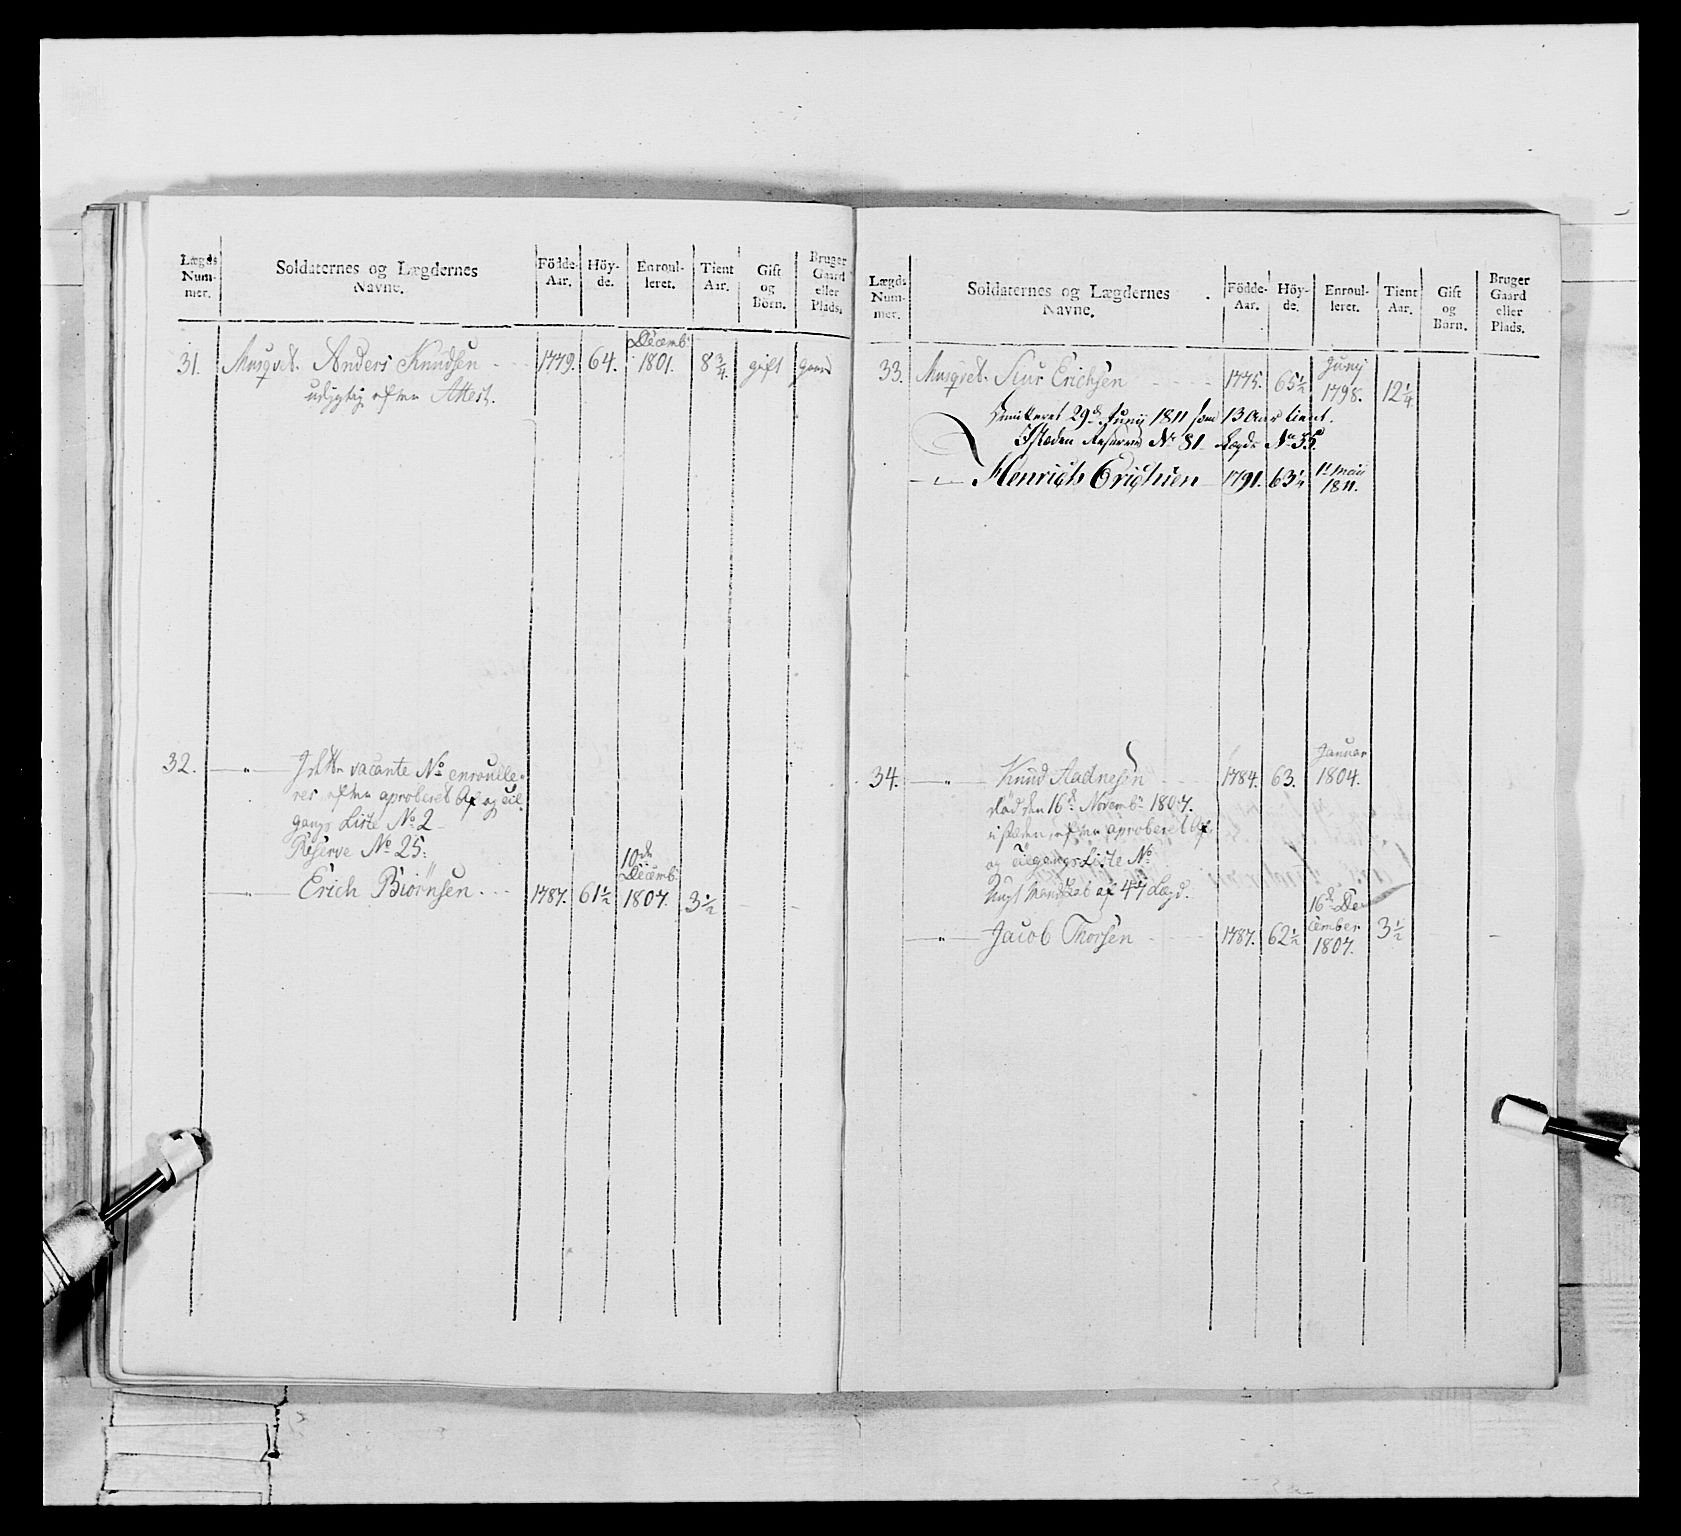 Lægds Num- mer.
Soldaternes og Lægdernes Navne.
Födde- Aar.
Höy- de.
Enroul- leret.
Tient Aar.
Gift og Börn.
Bruger Gaard eller Plads.
31. Musqvet. Anders Knudsen 1779. 64. Decemb 1801. 8 3/4. gift gaard
udygtig efter Attest.
32. " I dette vacante No enroulle-
res efter aproberet Af og til-
gangs Liste No 2
Reserve No 25:
" Erich Biörnsen 1787. 61 1/2 10de Decemb. 1807. 3 1/2
Lægds Num- mer.
Soldaternes og Lægdernes Navne.
Födde- Aar.
Höy- de.
Enroul- leret.
Tient Aar.
Gift og Børn.
Bruger Gaard eller Plads.
33. Musqvet. Siur Erichsen 1775. 65 1/2 Junij 1798. 12 1/4.
Dimitteret 29de Junij 1811 som 13 Aar tient.
Isteden Reserve No 81 Lægds No 35
" Henrich Erichsen 1791. 63 1/4 1te Maij 1811.
34. " Knud Aadnesen 1784. 63. Januar 1804.
död den 16de Novembr 1807.
i steden, efter aproberet Af
og tilgangs Liste No
Ungt Mandskab af 47 Lægd.
" Jacob Thorsen 1787. 62 1/2 16de De- cember 1807. 3 1/2